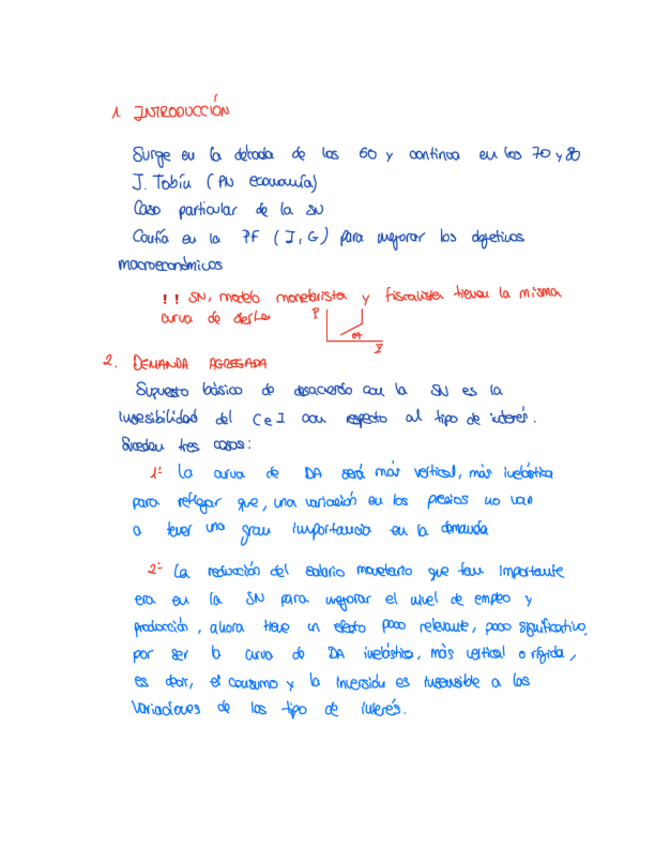 1 INTRODUCCIÓN
Surge en la década de los 60 y continua en los 70 y 80
J. Tobin (PN economía)
Caso particular de la SN
Confía en la PF (I, G) para mejorar los objetivos
macroeconómicos
!! SN, modelo monetarista y fiscalista tienen la misma
curva de oferta
P
OA
Y
2. DEMANDA AGREGADA
Supuesto básico de desacuerdo con la SN es la
insesibilidad del C e I con respecto al tipo de interés.
Suceden tres casos:
1º La curva de DA será más vertical, más inelástica
para reflejar que, una variación en los precios no van
a tener una gran importancia en la demanda
2º La reducción del salario monetario que tan importante
era en la SN para mejorar el nivel de empleo y
producción, ahora tiene un efecto poco relevante, poco significativo,
por ser la curva de DA inelástica, más vertical o rígida,
es decir, el consumo y la inversión es insensible a las
variaciones de los tipo de interés.